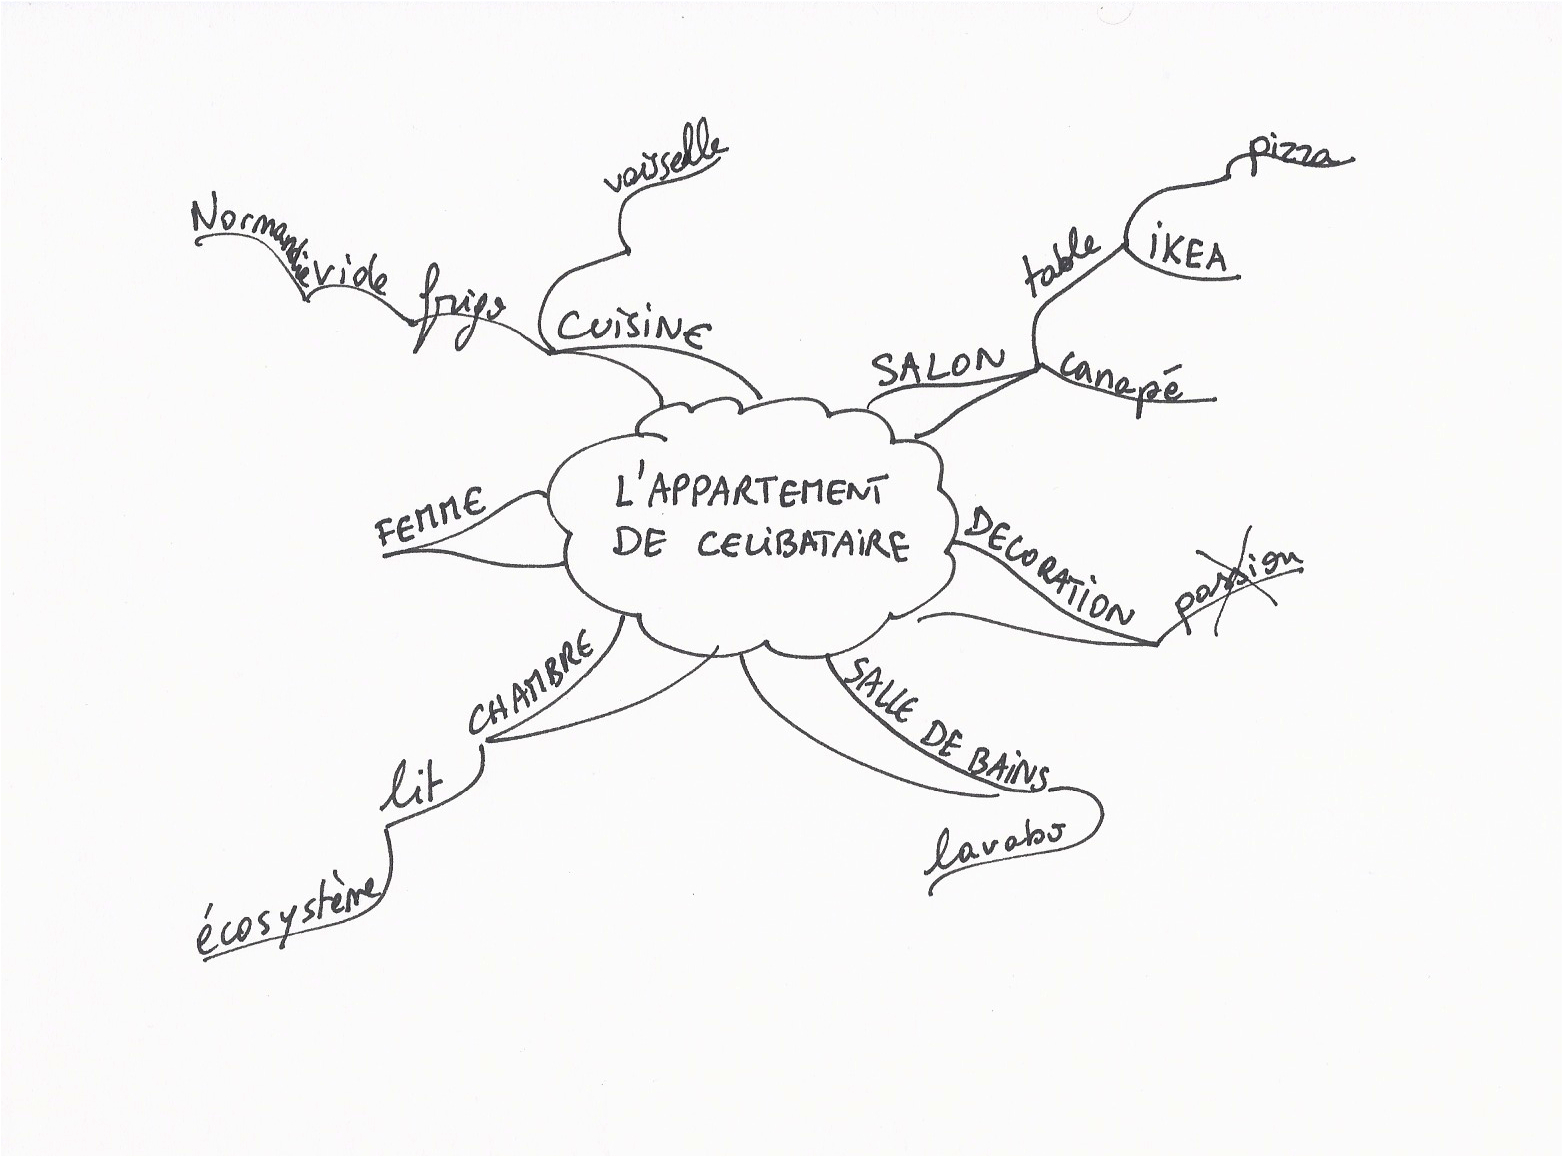 pizza
vaisselle
Normandie
vide
frigo
table
iKEA
CUiSiNE
SALON
canapé
L'APPARTEMENT
DE CELiBATAiRE
FEMME
DECORATiON
passion
CHAMBRE
SALLE DE BAiNS
lit
lavabo
écosystème